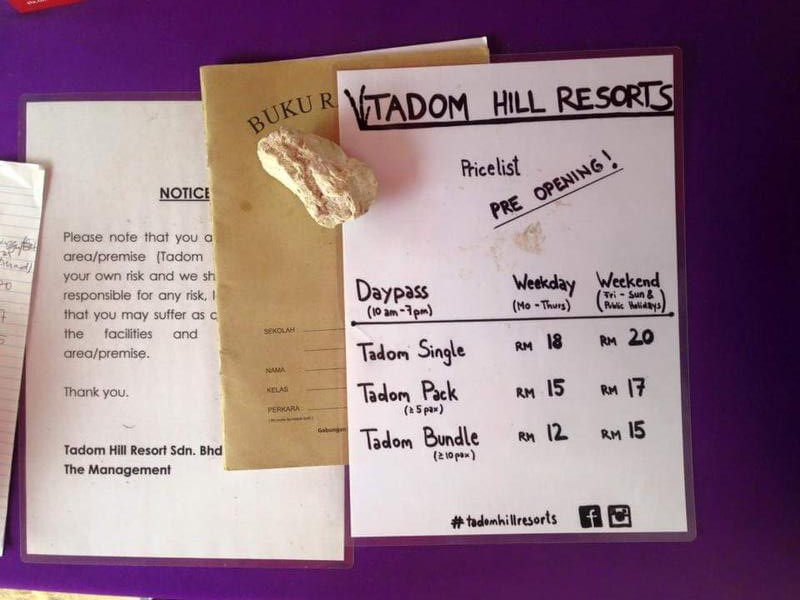 NOTICE
Please note that you a
area/premise (Tadom
your own risk and we sh
responsible for any risk,
that you may suffer as c
the facilities and
area/premise.
Thank you.
Tadom Hill Resort Sdn. Bhd
The Management
BUKU R
SEKOLAH
NAMA
KELAS
PERKARA
Gabungan
TADOM HILL RESORTS
Pricelist
PRE OPENING!
Daypass Weekday Weekend
(10 am - 7 pm) (Mo - Thurs) (Fri - Sun & Public Holidays)
Tadom Single RM 18 RM 20
Tadom Pack RM 15 RM 17
(≥ 5 pax)
Tadom Bundle RM 12 RM 15
(≥ 10 pax)
#tadomhillresorts